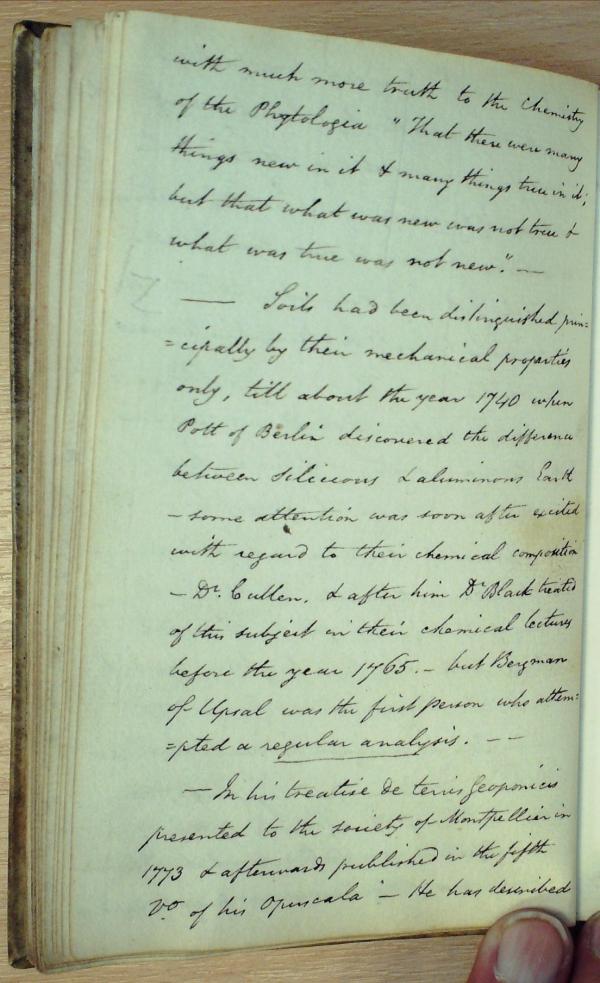 with much more truth to the Chemistry
of the Phytologia "That there were many
things new in it & many things true in it;
but that what was new was not true &
what was true was not new." —
— Soils had been distinguished prin=
=cipally by their mechanical properties
only, till about the year 1740 when
Pott of Berlin discovered the difference
between siliceous & aluminous Earth
– some attention was soon after excited
with regard to their chemical composition
– Dr. Cullen. & after him Dr Black treated
of this subject in their chemical lectures
before the year 1765. – but Bergman
of Upsal was the first person who attem=
=pted a regular analysis. – –
– In his treatise de terris Geoponicis
presented to the society of Montpellier in
1773 & afterwards published in the fifth
Vo of his Opuscala" – He has described